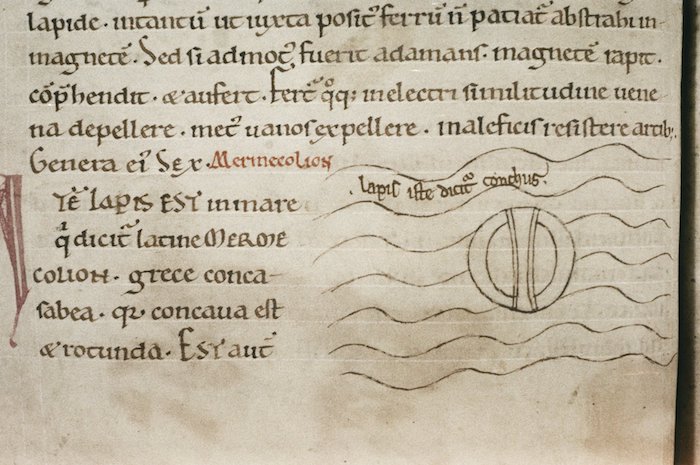 lapide · intantū ut iuxta posit᷒ ferrū ñ patiat᷒ abstrahi in-
magnetē · Sed si admot᷒ fuerit adamans · magnetē rapit ·
cōp̄hendit · & aufert · Fert᷒ qͦq; in electri similitudine uene
na depellere · met᷒ uanos expellere · maleficis resistere artib;
Genera ei᷒ Sex · Mermecolion
ITĒ LAPIS EST in mare
q̇ dicit᷒ latine MERME
COLION · grece conca-
sabea · qr̄ concaua est
& rotunda · EST aut̄
· lapis iste dicit᷒ conchus ·